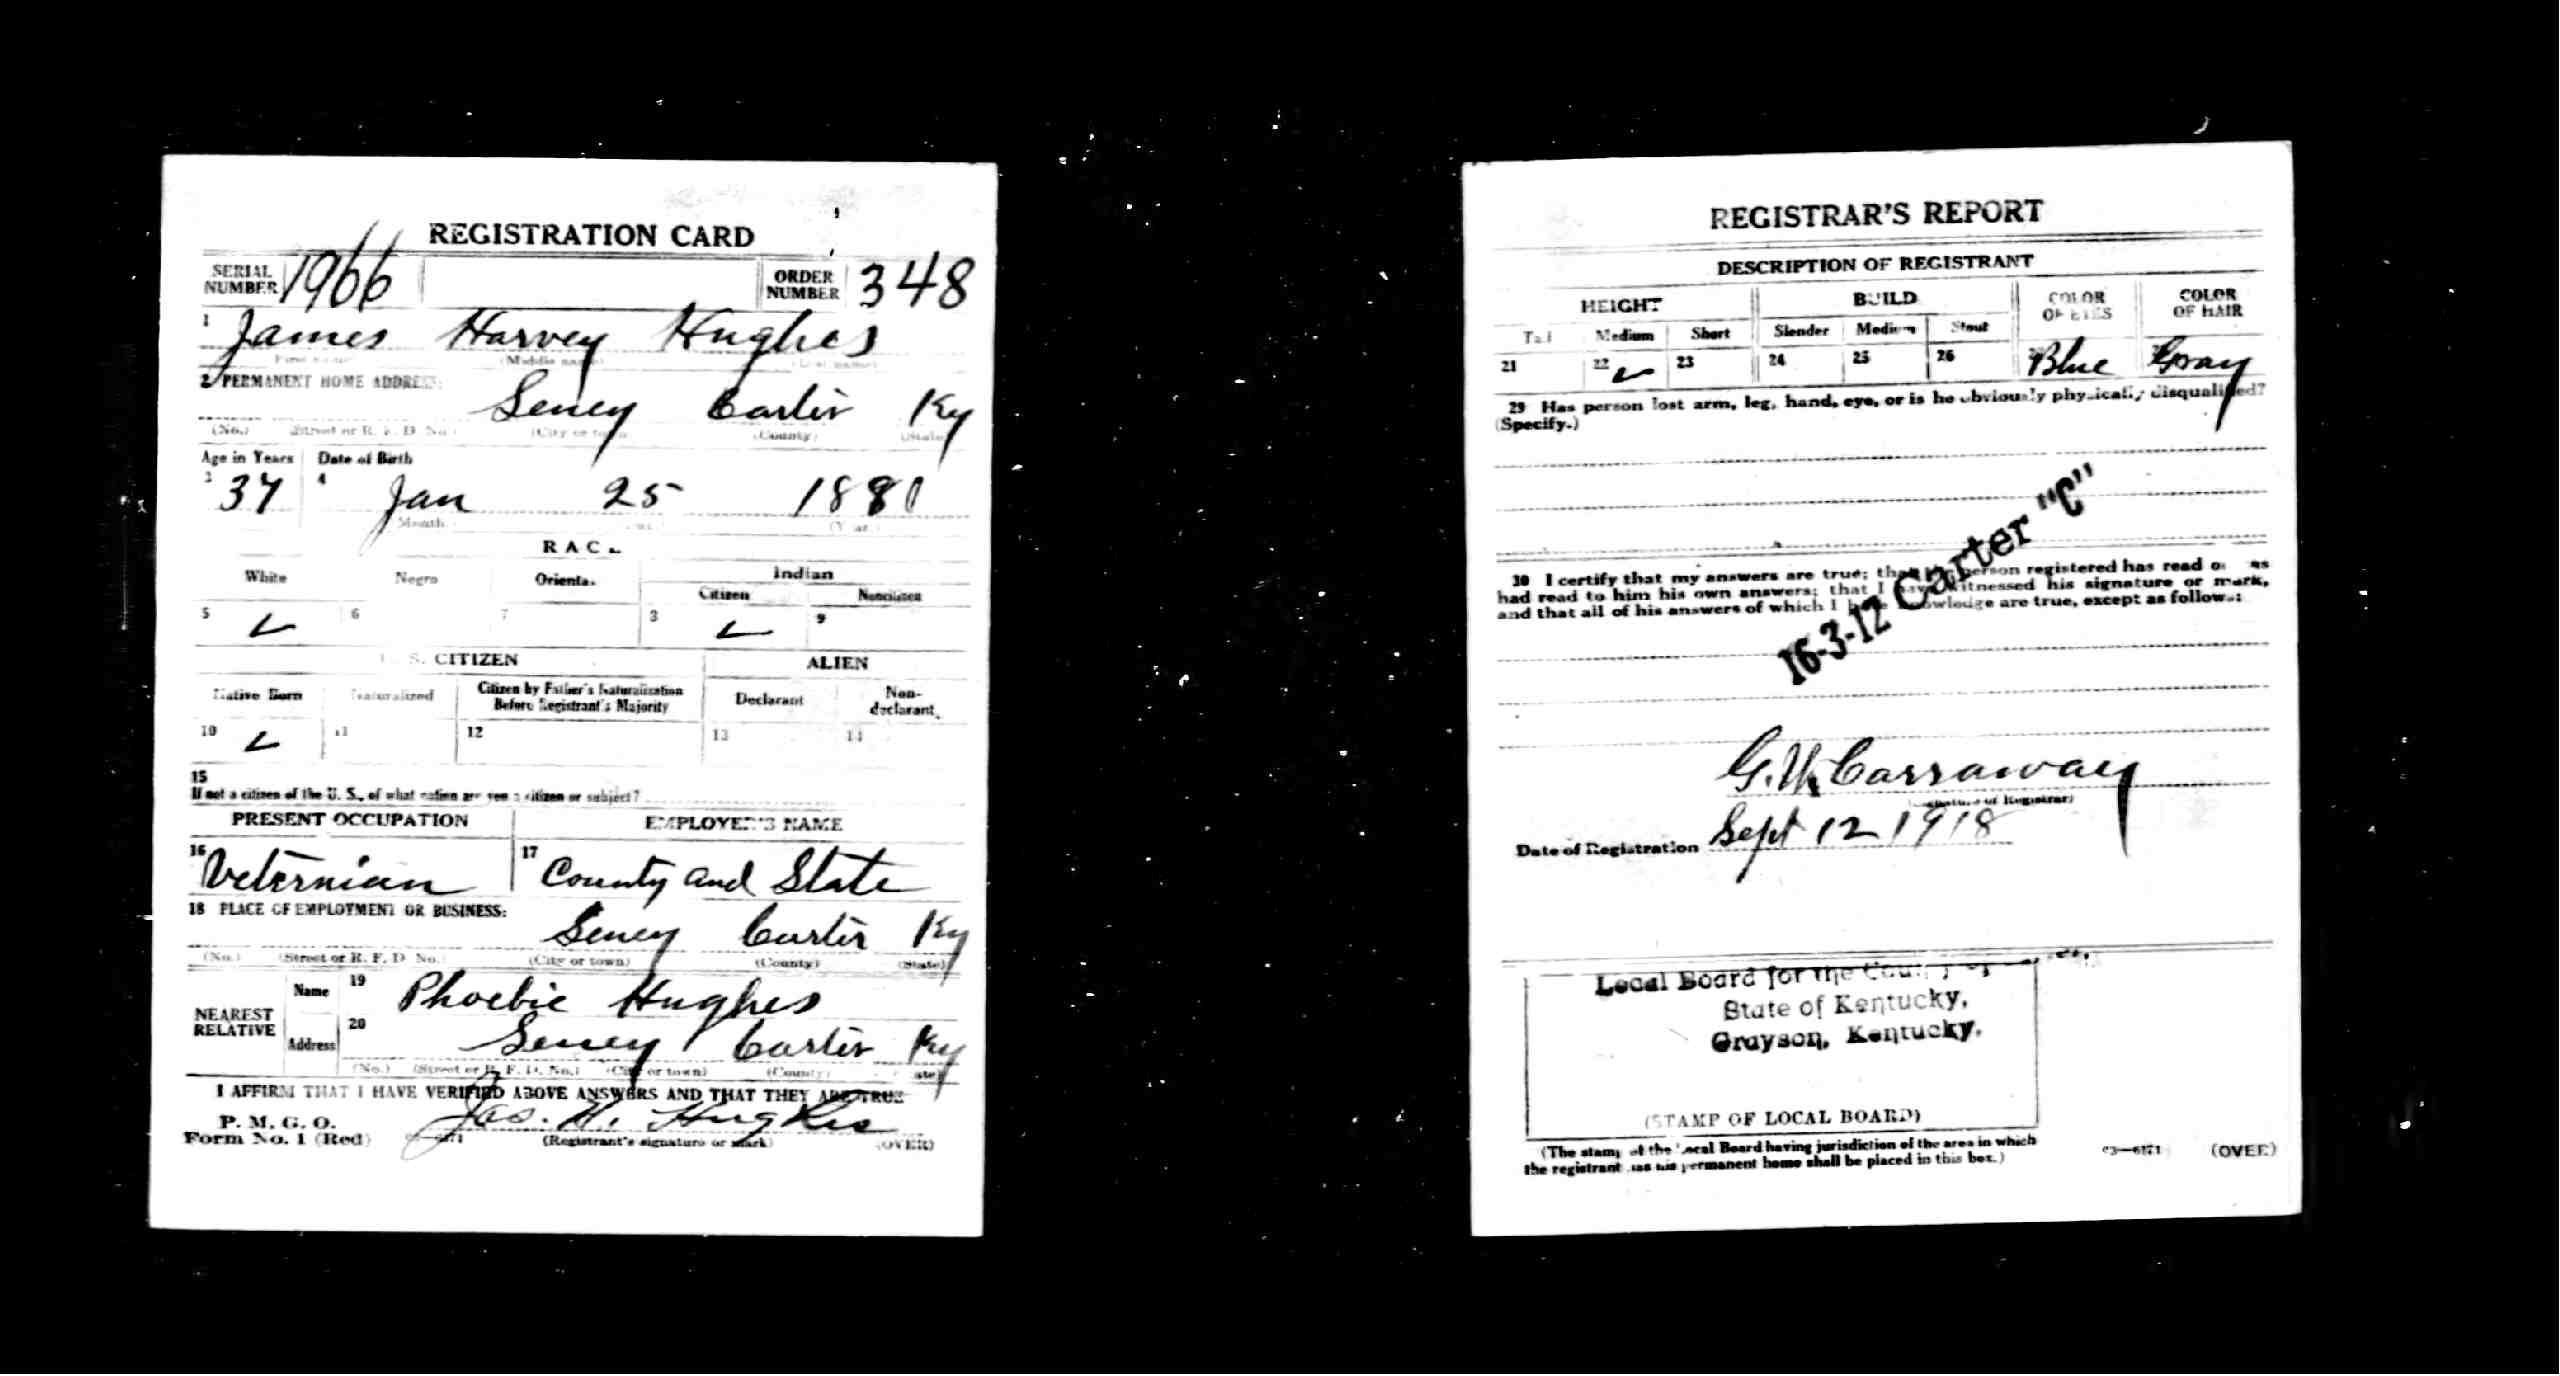 REGISTRATION CARD
SERIAL NUMBER 1966 ORDER NUMBER 348
1 James Harvey Hughes
(Middle name) (Last name)
2 PERMANENT HOME ADDRESS:
Seney Carter Ky
(No.) (Street or R. F. D. No.) (City or town) (County) (State)
Age in Years Date of Birth
3 37 4 Jan 25 1881
Month (Year)
RACE
White Negro Oriental Indian
Citizen Noncitizen
5 ✓ 6 7 8 ✓ 9
U. S. CITIZEN ALIEN
Native Born Naturalized Citizen by Father's Naturalization Before Registrant's Majority Declarant Non-declarant
10 ✓ 11 12 13 14
15
If not a citizen of the U. S., of what nation are you a citizen or subject?
PRESENT OCCUPATION EMPLOYER'S NAME
16 Veternian 17 County and State
18 PLACE OF EMPLOYMENT OR BUSINESS:
Seney Carter Ky
(No.) (Street or R. F. D. No.) (City or town) (County) (State)
NEAREST RELATIVE Name 19 Phoebie Hughes
Address 20 Seney Carter Ky
(No.) (Street or R. F. D. No.) (City or town) (County) (State)
I AFFIRM THAT I HAVE VERIFIED ABOVE ANSWERS AND THAT THEY ARE TRUE
P. M. G. O.
Form No. 1 (Red) Jas. H. Hughes
(Registrant's signature or mark) (OVER)
REGISTRAR'S REPORT
DESCRIPTION OF REGISTRANT
HEIGHT BUILD COLOR OF EYES COLOR OF HAIR
Tall Medium Short Slender Medium Stout
21 22 ✓ 23 24 25 26 Blue Gray
29 Has person lost arm, leg, hand, eye, or is he obviously physically disqualified?
(Specify.)
16-3-12 Carter "C"
30 I certify that my answers are true; that the person registered has read or has
had read to him his own answers; that I have witnessed his signature or mark,
and that all of his answers of which I have knowledge are true, except as follows:
G. W. Carraway
(Signature of Registrar)
Date of Registration Sept 12 1918
Local Board for the County of
State of Kentucky,
Grayson, Kentucky.
(STAMP OF LOCAL BOARD)
(The stamp of the Local Board having jurisdiction of the area in which
the registrant has his permanent home shall be placed in this box.)
03—6171 (OVER)